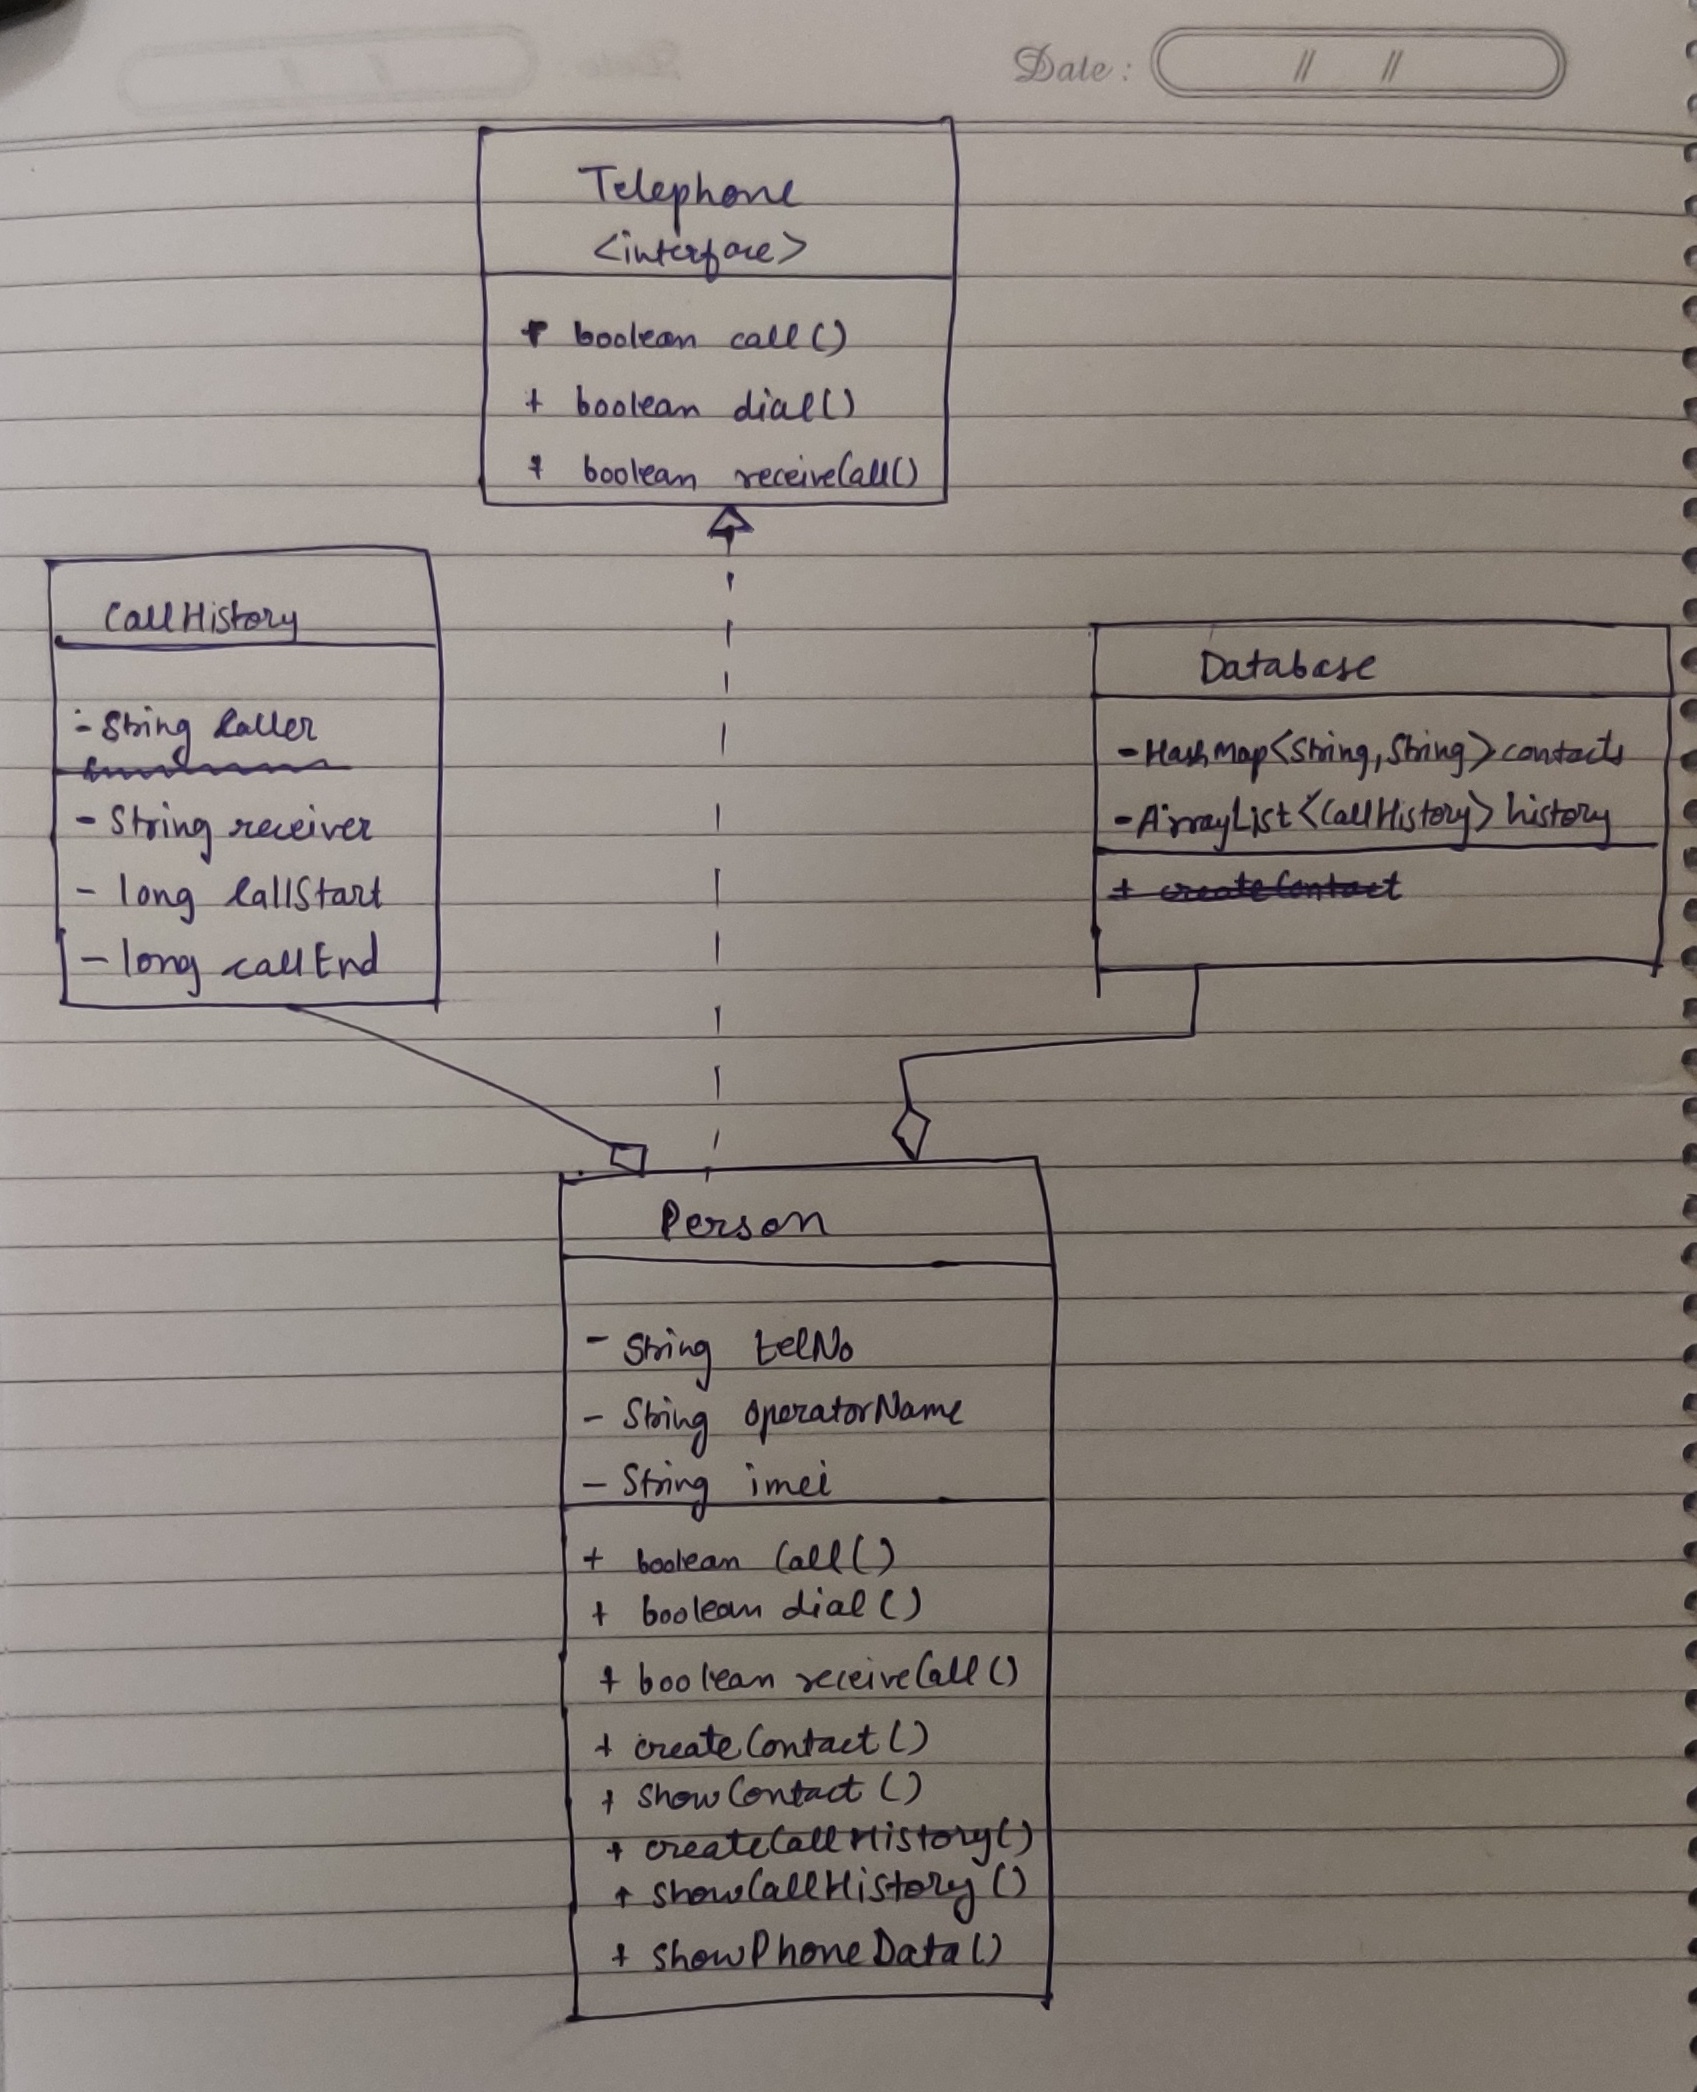 Date : // //
Telephone
<interface>
+ boolean call()
+ boolean dial()
+ boolean receiveCall()
CallHistory
- String Caller
- String receiver
- long CallStart
- long callEnd
Database
- HashMap<String, String> contacts
- ArrayList<CallHistory> history
+ createContact
Person
- String telNo
- String operatorName
- String imei
+ boolean Call()
+ boolean dial()
+ boolean receiveCall()
+ createContact()
+ showContact()
+ createCallHistory()
+ showCallHistory()
+ showPhoneData()